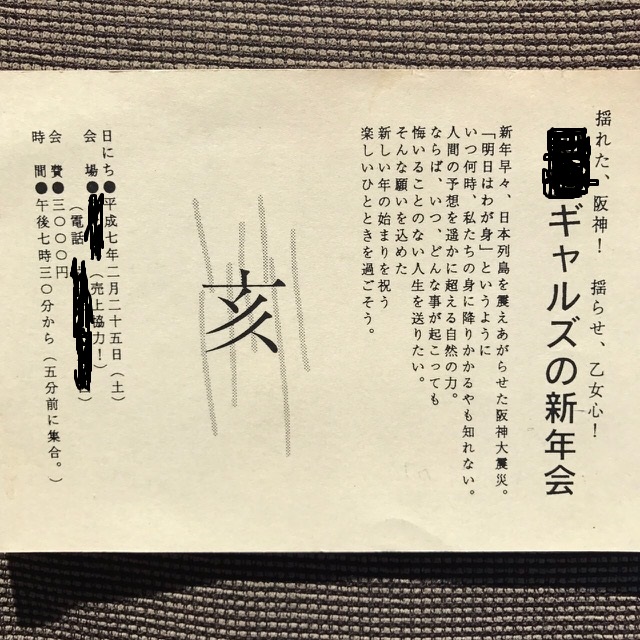 揺れた、阪神！ 揺らせ、乙女心！
ギャルズの新年会
新年早々、日本列島を震えあがらせた阪神大震災。
「明日はわが身」というように
いつ何時、私たちの身に降りかかるやも知れない。
人間の予想を遥かに超える自然の力。
ならば、いつ、どんな事が起こっても
悔いることのない人生を送りたい。
そんな願いを込めた
新しい年の始まりを祝う
楽しいひとときを過ごそう。
亥
日にち●平成七年二月二十五日（土）
会 場●（売上協力！）
（電話 ）
会 費●三〇〇〇円
時 間●午後七時三〇分から（五分前に集合。）